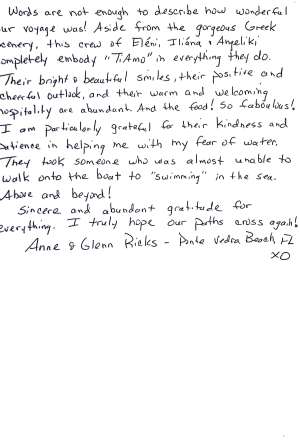 Words are not enough to describe how wonderful
ur voyage was! Aside from the gorgeous Greek
cenery, this crew of Eléni, Iliána & Angeliki
ompletely embody "TiAmo" in everything they do.
Their bright & beautiful smiles, their positive and
cheerful outlook, and their warm and welcoming
hospitality are abundant. And the food! So fabulous!
I am particularly grateful for their kindness and
patience in helping me with my fear of water.
They took someone who was almost unable to
walk onto the boat to "swimming" in the sea.
Above and beyond!
Sincere and abundant gratitude for
everything. I truly hope our paths cross again!
Anne & Glenn Ricks - Ponte Vedra Beach, FL
XO